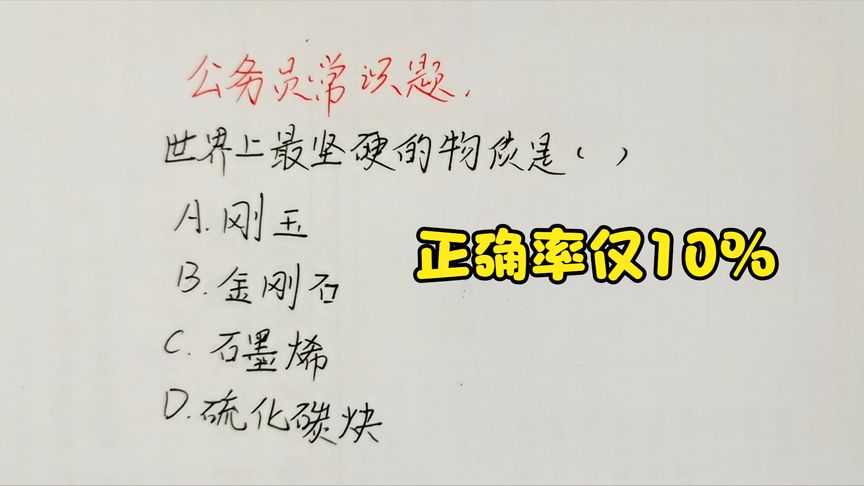 公务员常识题.
世界上最坚硬的物质是（ ）
A.刚玉
B.金刚石
正确率仅10%
C.石墨烯
D.硫化碳炔